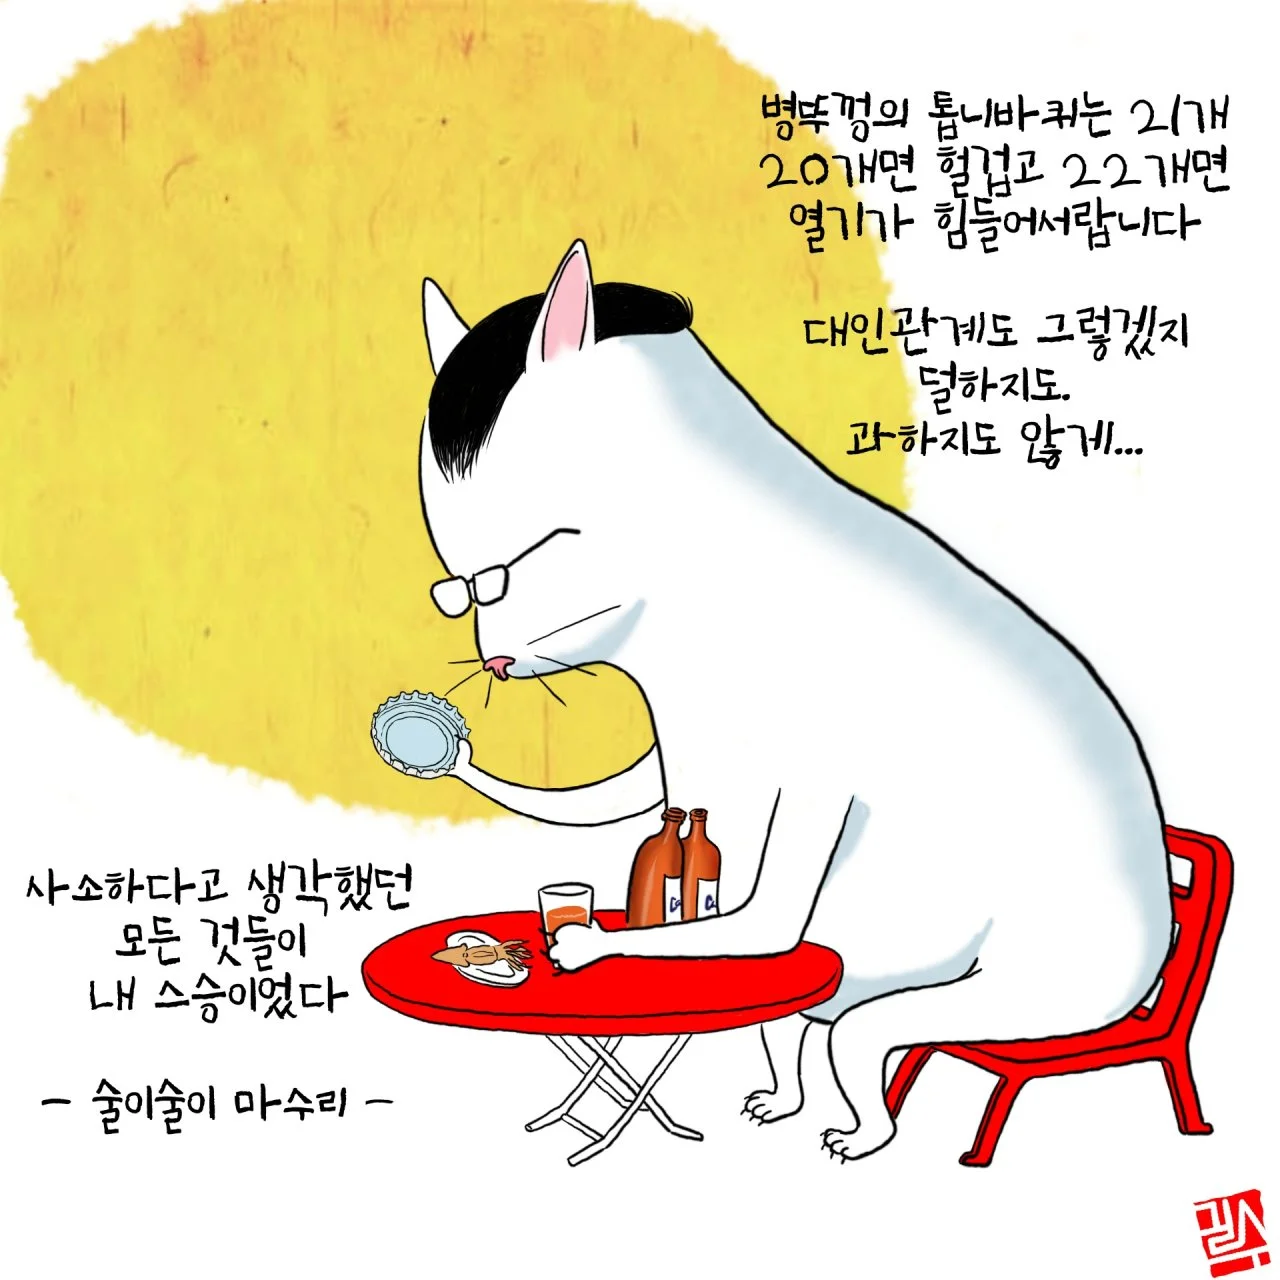 병뚜껑의 톱니바퀴는 21개
20개면 헐겁고 22개면
열기가 힘들어서랍니다
대인관계도 그렇겠지
덜하지도.
과하지도 않게...
사소하다고 생각했던
모든 것들이
내 스승이었다
- 술이술이 마수리 -